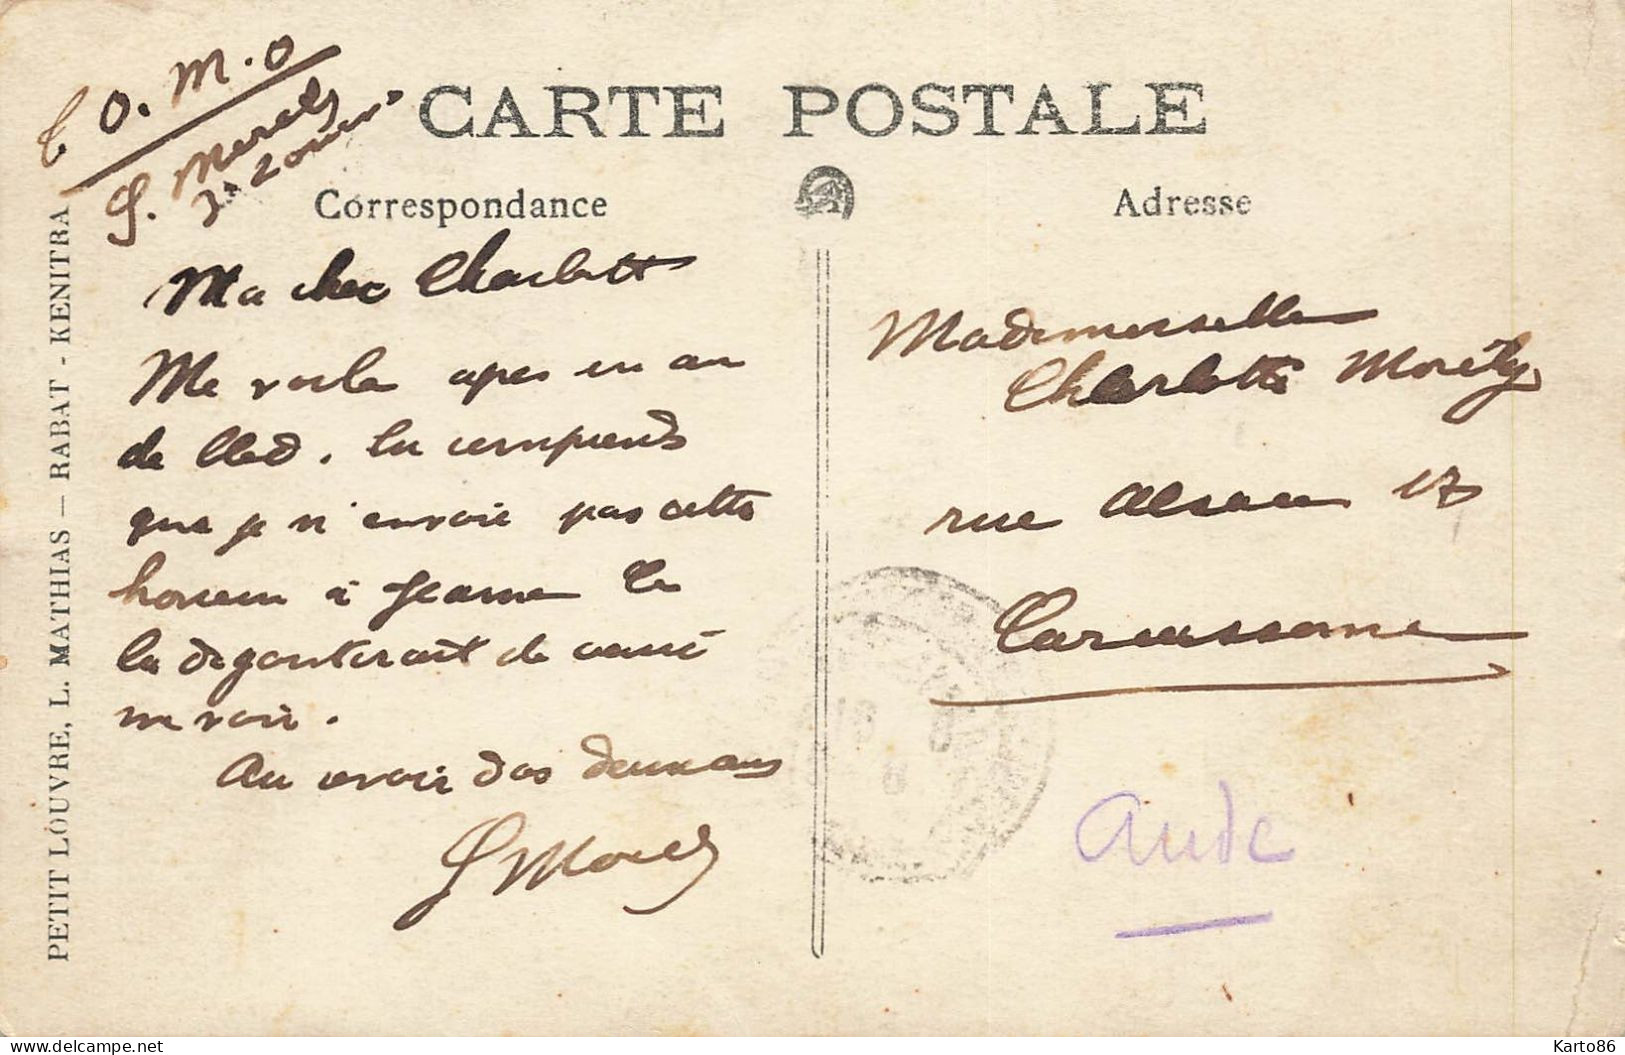 T O. M. O
CARTE POSTALE
Correspondance
Adresse
Ma cher Charlott
Me voila apres un an
de Bled. tu comprends
que je n'envoie pas cette
horreur à Jeanne Ce
la degouterait de venir
me voir.
Au revoir dos deux ans
Mademoiselle
Charlotte
rue Alsace 17
Carcassonne
Aude
PETIT LOUVRE, L. MATHIAS — RABAT - KENITRA
delcampe.net
Karto86